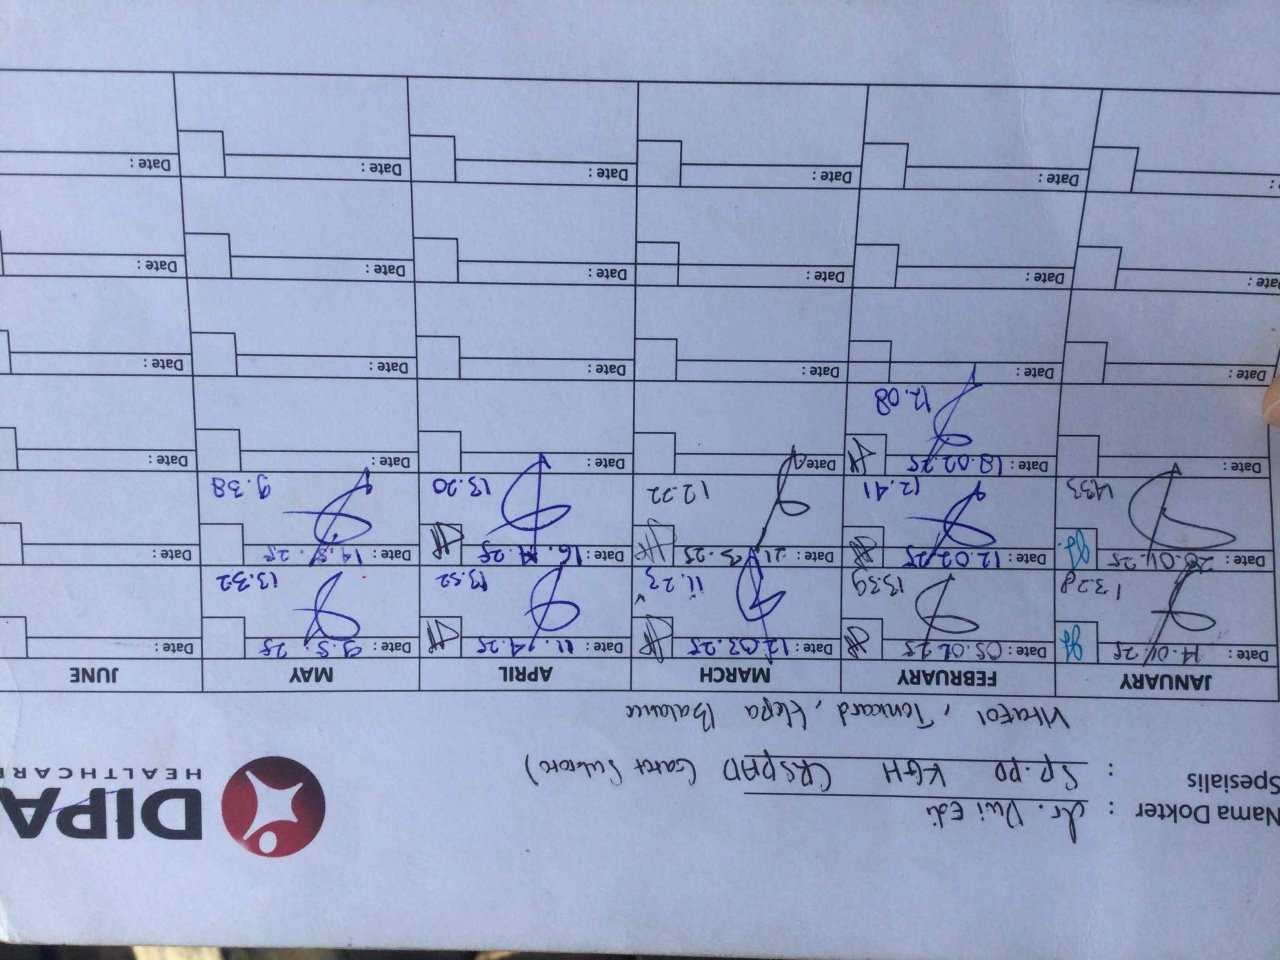 DIPA
HEALTHCARE
Nama Dokter : dr. Dwi Edi
Spesialis : Sp.PD KGH (RSPAD Gatot Subroto)
Hepa Balance
JANUARY FEBRUARY MARCH APRIL MAY JUNE
Date : 14.01.25 Date : 05.02.25 Date : 12.03.25 Date : 11.4.25 Date : 9.5.25 Date :
13.28 13.39 11.23 13.52 13.32
Date : 20.01.25 Date : 12.02.25 Date : 21.3.25 Date : 16.4.25 Date : 14.5.25 Date :
1433 12.41 12.22 13.20 9.38
Date : Date : 18.02.25 Date : Date : Date : Date :
12.08
Date : Date : Date : Date : Date : Date :
Date : Date : Date : Date : Date : Date :
Date : Date : Date : Date : Date :